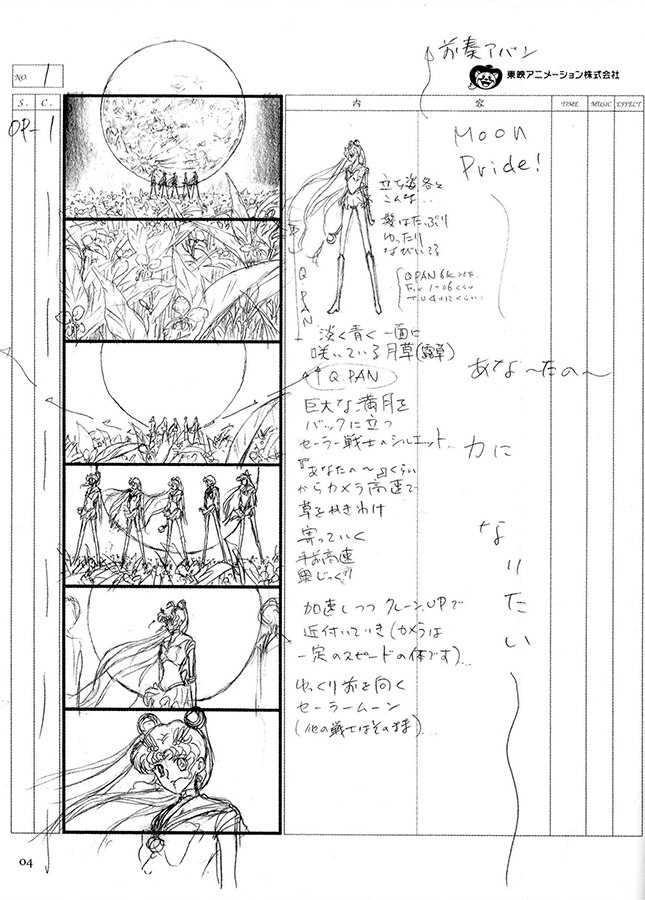 前奏アバン
東映アニメーション株式会社
NO. 1
S. C. 内 容 TIME MUSIC EFFECT
OP-1
Moon
Pride!
立ち姿各々
こんな...
髪はたっぷり
ゆったり
なびいてる
Q.PAN
淡く青く一面に
咲いている月草(露草)
Q.PAN
あな〜たの〜
巨大な満月を
バックに立つ
セーラー戦士のシルエット...
力に
『あなたの〜』くらい
からカメラ高速で
草をかきわけ
寄っていく
手前高速
奥じっくり
なりたい
加速しつつクレーンUPで
近付いていき(カメラは
一定のスピードの体です)...
ゆっくり前を向く
セーラームーン
(他の戦士はそのまま)...
04